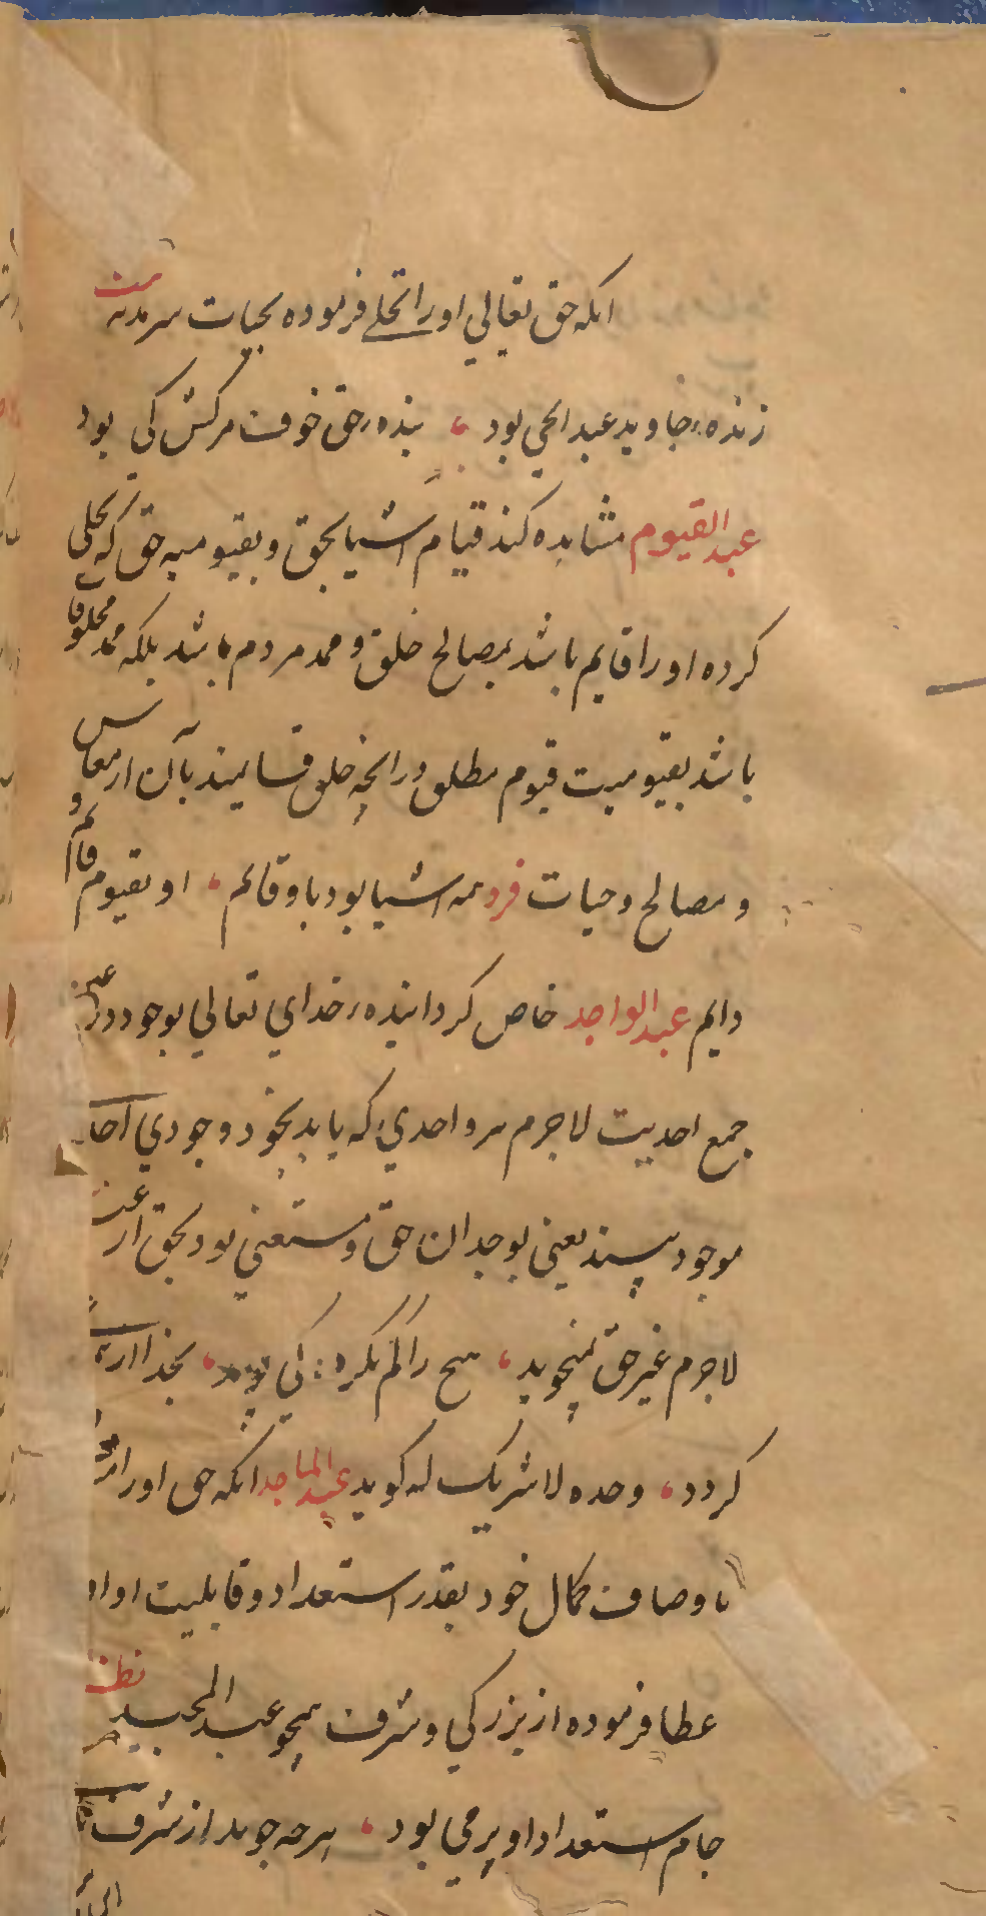 انکه حق تعالي اورا تجلے فرموده بحیات سرمدیه بیت
زنده جاوید عبد الحي بود ، بنده حق خوف مرکش کي بود
عبد القیوم مشاهده کند قیام اشیا بحق و بقیومیه حق که تجلي
کرده اورا قایم باشد بمصالح خلق و ممد مردم باشد بلکه ممد مخلوقا
باشد بقیومیت قیوم مطلق در انچه خلق قایمند بآن از معاش
و مصالح و حیات فرد همه اشیا بود باو قائم ، او بقیوم قائم و
دایم عبد الواجد خاص کردانیده خداي تعالي بوجود در عین
جمع احدیت لاجرم هر واحدي که یابد بخود وجودي
موجود بیند یعنی بوجدان حق و مستغني بود بحق از غیر
لاجرم غیر حق نمیجوید ، هیچ را کم نکرد کي جوید ، بخدا
کردد ، وحده لا شریک له کوید عبد الماجد انکه حق اورا
باوصاف کمال خود بقدر استعداد و قابلیت او
عطا فرموده از بزرکي و شرف همچو عبد المجید نظم
جام استعداد او پر مي بود ، هرچه جوید از شرف